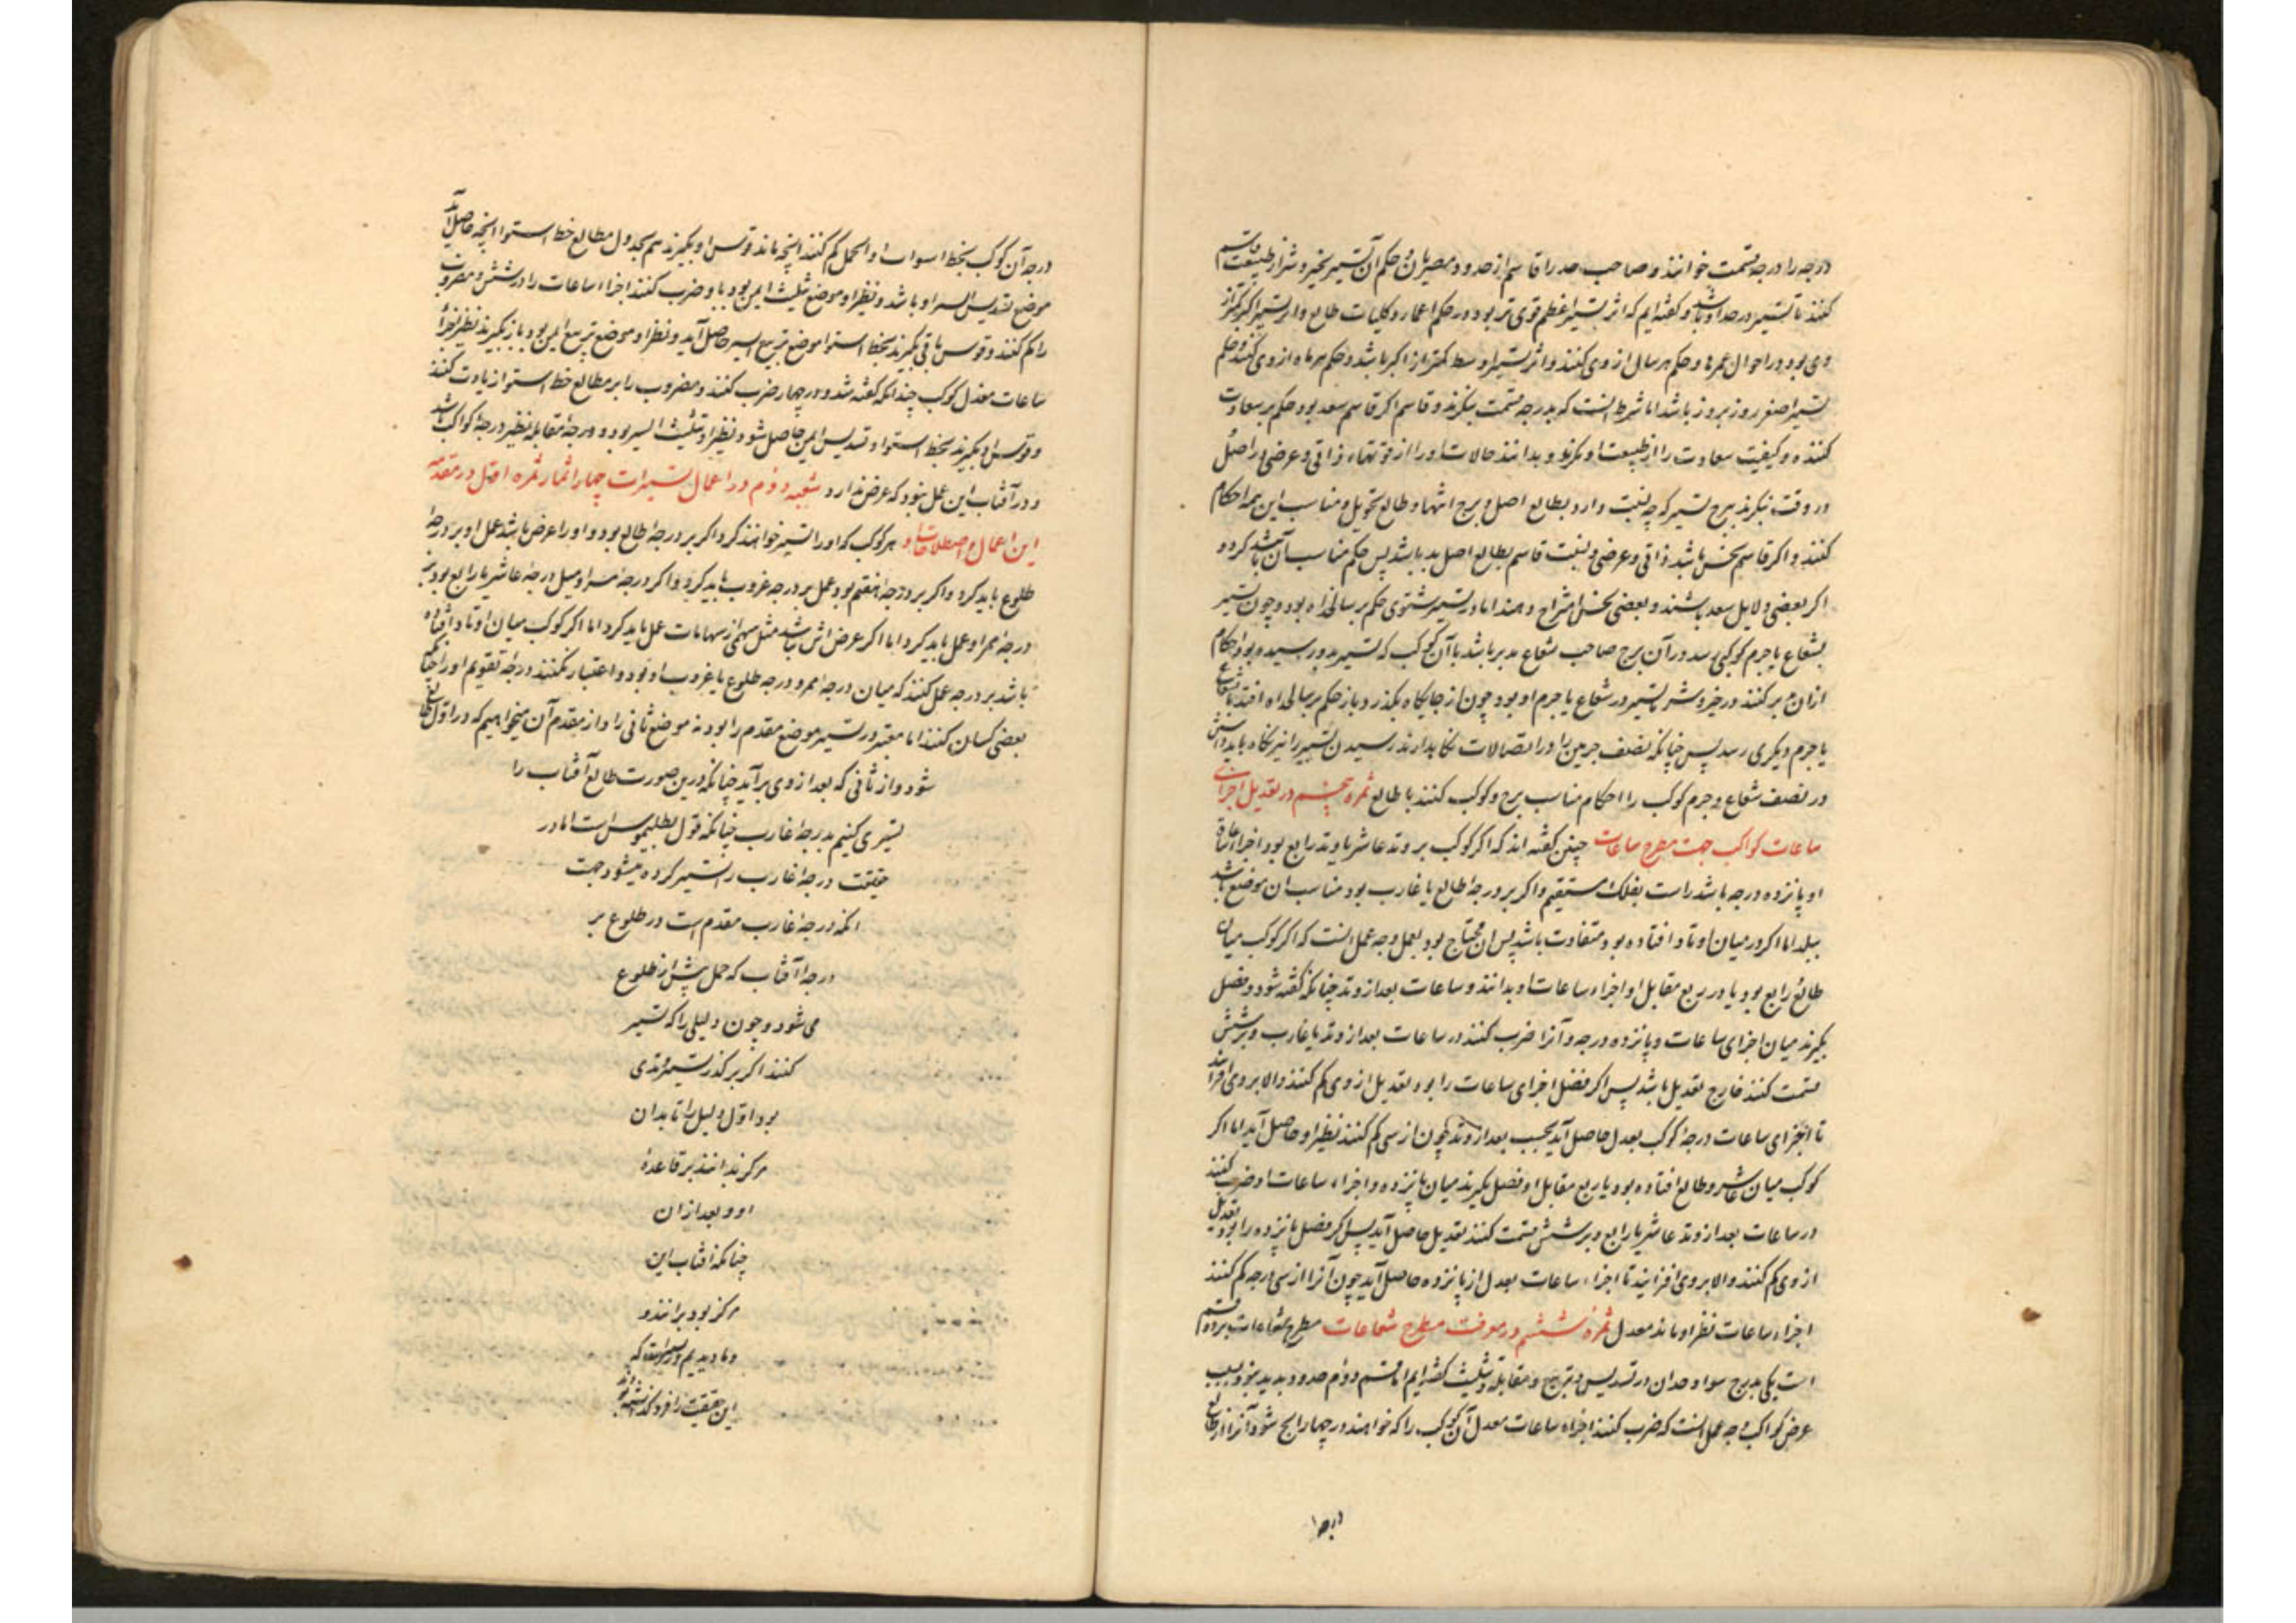 درجه را درجه قسمت خوانند و صاحب حد را قاسم از حدود مصریان و حکم آن تسییر بخیر و شر از طبیعت قاسم
کنند تا تسییر در حد او باشد و کفته ایم که اثر تسییر اعظم قوی تر بود در حکم اعمار و کلیات طالع و اثر تسییر اکبر کمتر از
وی بود در احوال عمرها و حکم هر سال از وی کنند و اثر تسییر اوسط کمتر از اکبر باشد و حکم هر ماه از وی کنند و حکم
تسییر اصغر روز بروز باشد اما شرط آنست که بدرجه قسمت بنکرند و قاسم اکر قاسم سعد بود حکم بر سعادت
کننده و کیفیت سعادت را از طبیعت او نکرند و بدانند حالات او را از قوتهاء ذاتی و عرضی در اصل
در وقت بنکرند ببرج تسییر که چه نسبت دارد بطالع اصل و برج انتها و طالع تحویل و مناسب این همه احکام
کنند و اکر قاسم نحس باشد ذاتی و عرضی و نسبت قاسم بطالع اصل بد باشد پس حکم مناسب آن باشد کرد و
اکر بعضی دلایل سعد باشند و بعضی نحس امتزاج دهند اما در تسییر شتوی حکم بر سالخداه بود و چون تسییر
بشعاع یا جرم کوکبی رسد در آن برج صاحب شعاع مدبر باشد با آن کوکب که تسییر بدو رسیده بود احکام
ازان مدبر کنند در خیر و شر تسییر در شعاع یا جرم او بود چون از جایکاه بکذرد باز حکم بر سالخداه افتد تا بشعاع
یا جرم دیکری رسد پس چنانکه نصف جرمین را در اتصالات نکاه دارند رسیدن تسییر را نیز نکاه باید داشتن
در نصف شعاع و جرم کوکب را احکام مناسب برج و کوکب کنند با طالع ثمره پنجم در تعدیل اجزای
ساعات کواکب جهت مطرح شعاعات چنین کفته اند که اکر کوکب بر وتد عاشر یا وتد رابع بود اجزاء ساعات
او پانزده درجه باشد راست بفلک مستقیم و اکر بر درجه طالع یا غارب بود مناسب ان موضع باشد
ببلد اما اکر در میان اوتاد افتاده بود متفاوت باشد پس ان محتاج بود بعمل و وجه عمل آنست که اکر کوکب میان
طالع و رابع بود یا در ربع مقابل او اجزاء ساعات او بدانند و ساعات بعد از وتد چنانکه کفته شود و فضل
بکیرند میان اجزای ساعات و پانزده درجه و آنرا ضرب کنند در ساعات بعد از وتد یا غارب و بر شش
قسمت کنند خارج تعدیل باشد پس اکر فضل اجزای ساعات را بود تعدیل از وی کم کنند و الا بر وی افزایند
تا اجزای ساعات درجه کوکب بعدل حاصل آید بحسب بعد از وتد و چون از سی کم کنند نظیر او حاصل آید اما اکر
کوکب میان عاشر و طالع افتاده بود یا ربع مقابل او فضل بکیرند میان پانزده و اجزاء ساعات او ضرب کنند
در ساعات بعد از وتد عاشر یا رابع و بر شش قسمت کنند تعدیل حاصل آید پس اکر فضل پانزده را بود تعدیل
از وی کم کنند و الا بر وی افزایند تا اجزاء ساعات بعدل از پانزده حاصل آید چون آنرا از سی درجه کم کنند
اجزاء ساعات نظیر او ماند معدل ثمره ششم در معرفت مطرح شعاعات مطرح شعاعات بر دو قسم
است یکی بدرج سوا و حد آن در تسدیس و تربیع و مقابله و تثلیث کفته ایم اما قسم دوم حدود بدید نبود بسبب
عرض کواکب وجه عمل آنست که ضرب کنند اجزاء ساعات معدل آن کوکب را که خواهند در چهار آنچ شود آنرا از مطالع
درجه
درجه آن کوکب بخط استوا از اول حمل کم کنند آنچه ماند قوس او بکیرند هم بجدول مطالع خط استوا آنچه حاصل آید
موضع تسدیس ایسر او باشد و نظیر او موضع تثلیث ایمن بود باز ضرب کنند اجزاء ساعات را در شش و مضروب
را کم کنند و قوس باقی بکیرند بخط استوا موضع تربیع ایسر حاصل آید و نظیر او موضع تربیع ایمن بود باز بکیرند نظیر اجزاء
ساعات معدل کوکب چنانکه کفته شد و در چهار ضرب کنند و مضروب را بر مطالع خط استوا زیادت کنند
و قوس او بکیرند بخط استوا و تسدیس ایمن حاصل شود و نظیر او تثلیث ایسر بود و درجه مقابله نظیر درجه کواکب باشد
و در آفتاب این عمل نبود که عرض ندارد شعبه دوم در اعمال تسییرات چهار اثمار ثمره اول در مقدمه
این اعمال و اصطلاحات او هر کوکب که او را تسییر خواهند کرد اکر بر درجه طالع بود و او را عرض باشد عمل او بر درجه
طلوع باید کرد و اکر بر درجه هفتم بود عمل بر درجه غروب باید کرد و اکر درجه ممر او میل درجه عاشر یا رابع بود بر
درجه ممر او عمل باید کرد اما اکر عرض اش نباشد مثل سهمی از سهامات عمل باید کرد اما اکر کوکب میان اوتاد افتاده
باشد بر درجه عمل کنند که میان درجه ممر و درجه طلوع یا غروب او بود و اعتبار نکنند درجه تقویم او را چنانکه
بعضی کسان کنند اما معتبر در تسییر موضع مقدم را بود نه موضع ثانی را و از مقدم آن میخواهیم که در اول طالع
شود و از ثانی که بعد از وی برآید چنانکه درین صورت طالع آفتاب را
تسییر می کنیم بدرجه غارب چنانکه قول بطلیموس است اما در
حقیقت درجه غارب را تسییر کرده میشود جهت
انکه درجه غارب مقدم است در طلوع بر
درجه آفتاب که حمل پیش از طلوع
می شود و چون دلیلی را که تسییر
کنند اکر بر کذر تسییر وتدی
بود اول دلیل را تا بدان
مرکز بدانند بر قاعده
او و بعد ازان
چنانکه آفتاب این
مرکز بود برانند و
و ما دیدیم در تسییرات که
این حقیقت را فرو کذاشته بودند